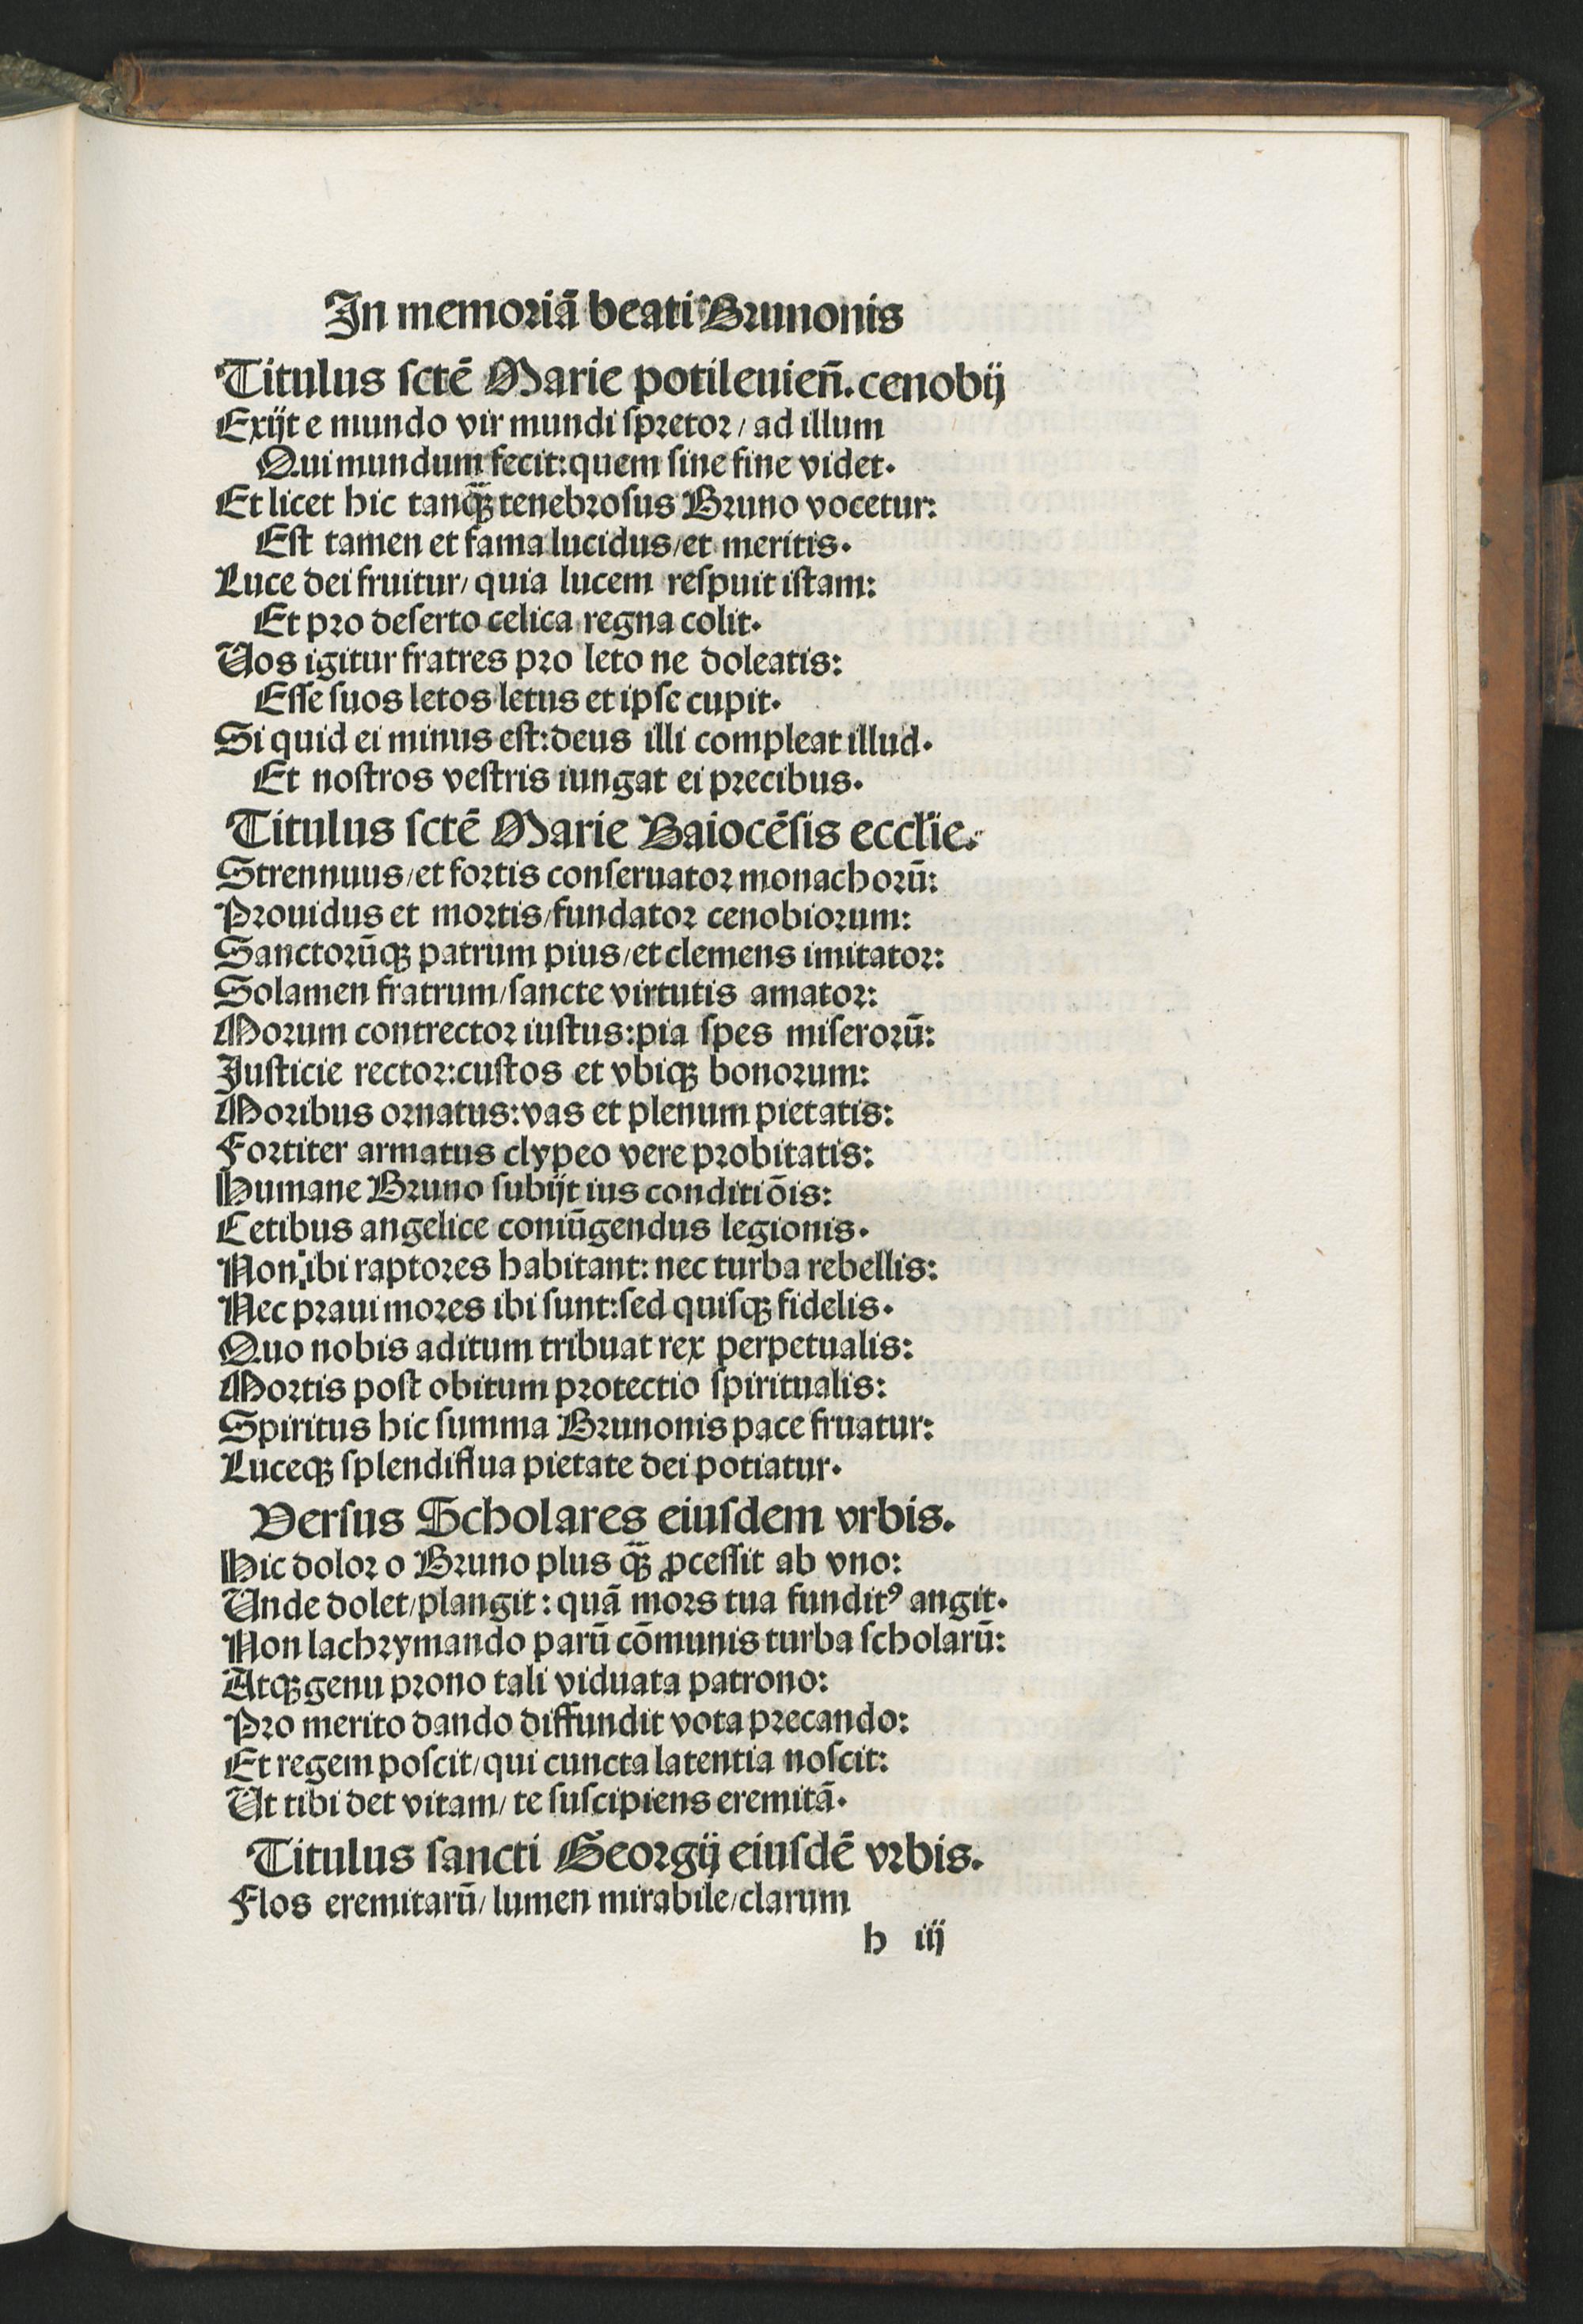 In memoriã beati Brunonis
Titulus sctẽ Marie potileuieñ. cenobij
Exijt e mundo vir mundi spretor / ad illum
Qui mundum fecit: quem sine fine videt.
Et licet hic tanꝙ̃ tenebrosus Bruno vocetur:
Est tamen et fama lucidus / et meritis.
Luce dei fruitur / quia lucem respuit istam:
Et pro deserto celica regna colit.
Uos igitur fratres pro leto ne doleatis:
Esse suos letos letus et ipse cupit.
Si quid ei minus est: deus illi compleat illud.
Et nostros vestris iungat ei precibus.
Titulus sctẽ Marie Baiocẽsis ecclie.
Strennuus / et fortis conseruator monachorũ:
Prouidus et mortis / fundator cenobiorum:
Sanctorũqꝫ patrum pius / et clemens imitator:
Solamen fratrum / sancte virtutis amator:
Morum contrector iustus: pia spes miserorũ:
Justicie rector: custos et vbiqꝫ bonorum:
Moribus ornatus: vas et plenum pietatis:
Fortiter armatus clypeo vere probitatis:
Humane Bruno subijt ius conditiõis:
Cetibus angelice coniũgendus legionis.
Non ibi raptores habitant: nec turba rebellis:
Nec praui mores ibi sunt: sed quisqꝫ fidelis.
Quo nobis aditum tribuat rex perpetualis:
Mortis post obitum protectio spiritualis:
Spiritus hic summa Brunonis pace fruatur:
Luceqꝫ splendiflua pietate dei potiatur.
Versus Scholares eiusdem vrbis.
Hic dolor o Bruno plus ꝙ̃ ꝓcessit ab vno:
Unde dolet / plangit: quã mors tua funditꝰ angit.
Non lachrymando parũ cõmunis turba scholarũ:
Atqꝫ genu prono tali viduata patrono:
Pro merito dando diffundit vota precando:
Et regem poscit / qui cuncta latentia noscit:
Ut tibi det vitam / te suscipiens eremitã.
Titulus sancti Georgij eiusdẽ vrbis.
Flos eremitarũ / lumen mirabile / clarum
h iij